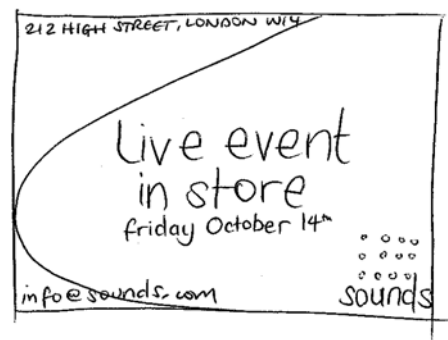 212 HIGH STREET, LONDON W14
Live event
in store
friday October 14th
info@sounds.com
sounds